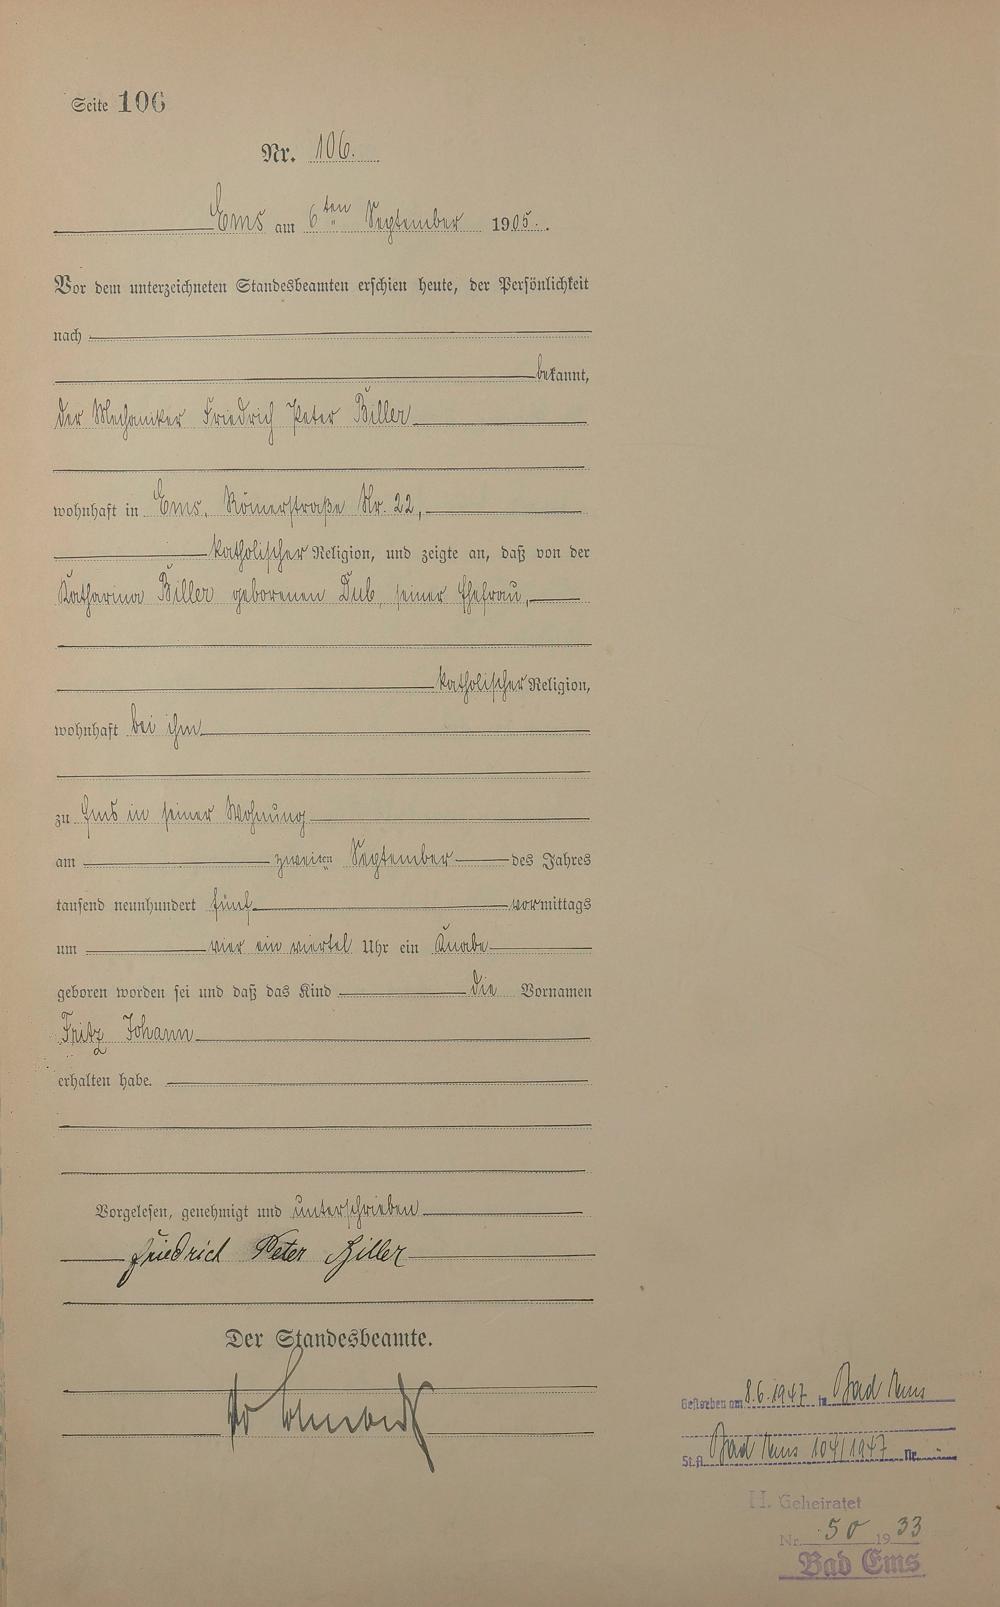 Seite 106
Nr. 106.
Ems am 6ten September 1905.
Vor dem unterzeichneten Standesbeamten erschien heute, der Persönlichkeit
nach
bekannt,
der Mechaniker Friedrich Peter Biller
wohnhaft in Ems, Römerstraße Nr. 22,
katholischer Religion, und zeigte an, daß von der
Katharina Biller geborenen Dub, seiner Ehefrau,
katholischer Religion,
wohnhaft bei ihm
zu Ems in seiner Wohnung
am zweiten September des Jahres
tausend neunhundert fünf vormittags
um vier ein viertel Uhr ein Knabe
geboren worden sei und daß das Kind die Vornamen
Fritz Johann
erhalten habe.
Vorgelesen, genehmigt und unterschrieben
Friedrich Peter Biller
Der Standesbeamte.
Gestorben am 8.6.1947 in Bad Ems
St.A. Bad Ems 104/1947 Nr.
H. Geheiratet
Nr. 50 1933
Bad Ems